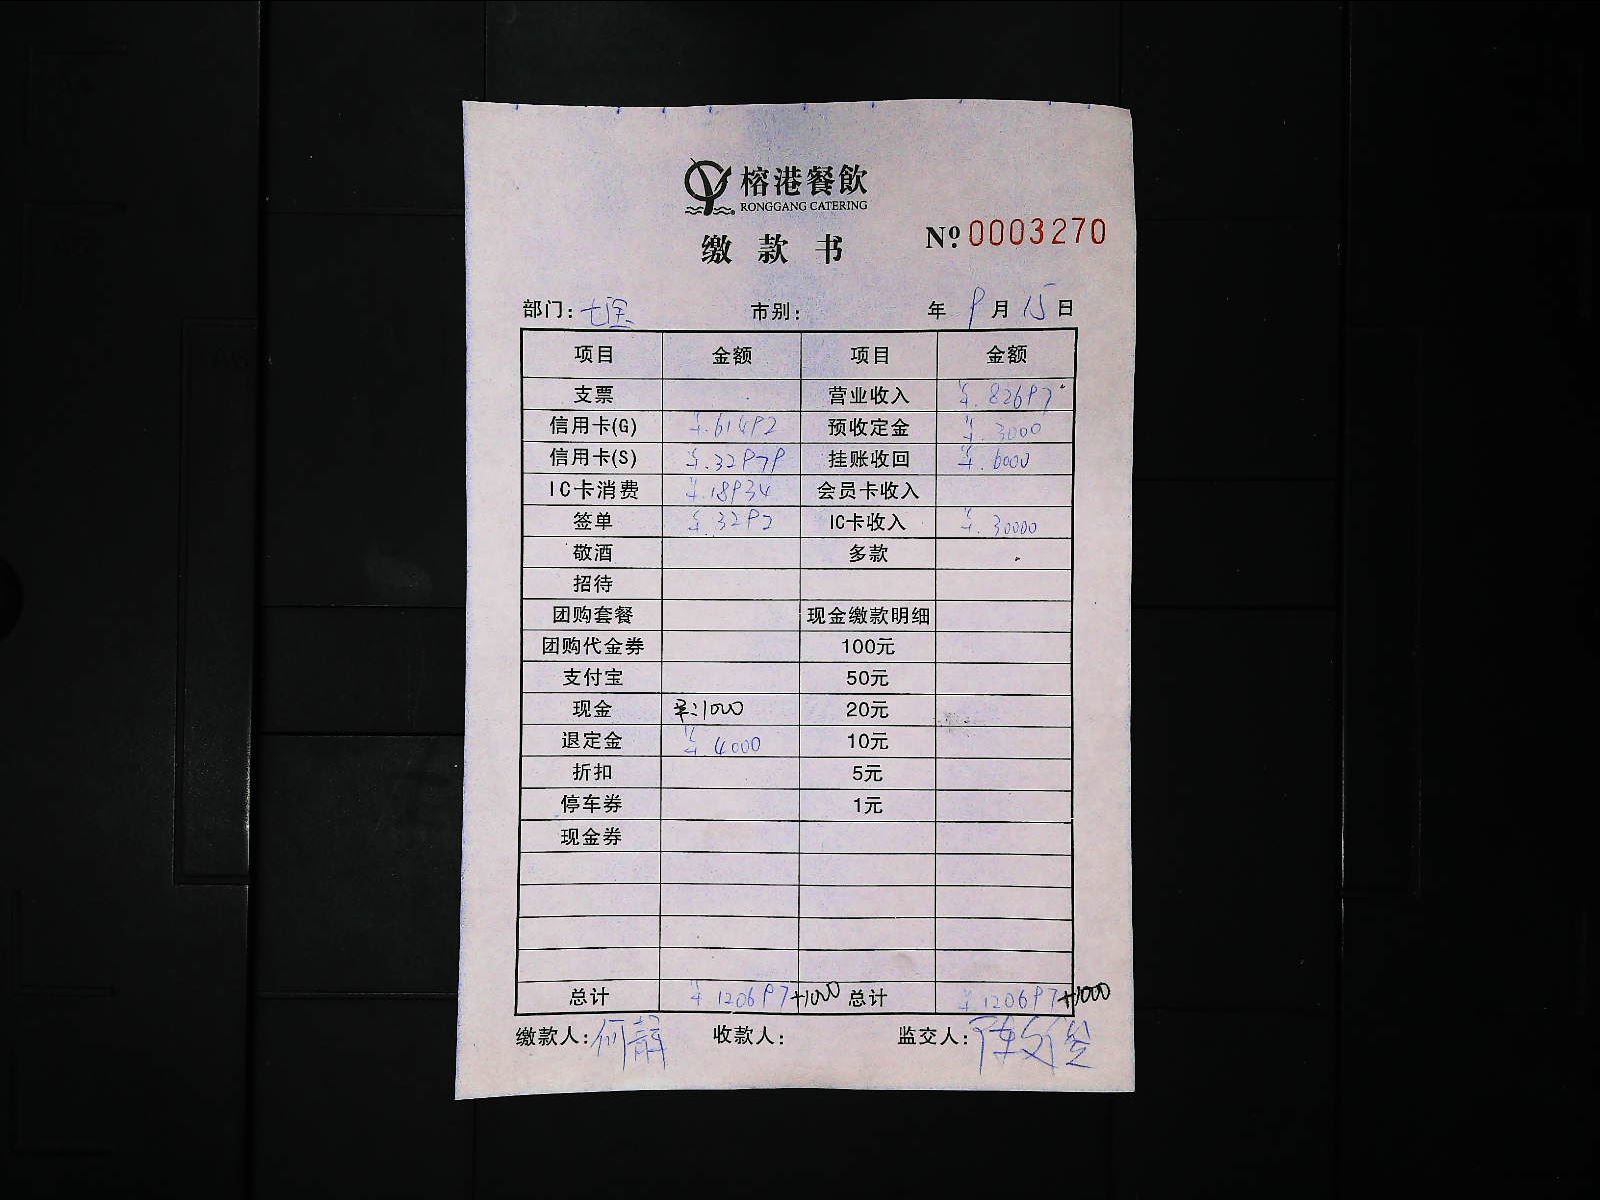 榕港餐飲
RONGGANG CATERING
缴款书 № 0003270
部门: 七宝 市别: 年 9 月 15 日
项目 金额 项目 金额
支票 营业收入 ¥.82697
信用卡(G) ¥.61492 预收定金 ¥.3000
信用卡(S) ¥.32979 挂账收回 ¥.6000
IC卡消费 ¥.18934 会员卡收入
签单 ¥.3292 IC卡收入 ¥.30000
敬酒 多款
招待
团购套餐 现金缴款明细
团购代金券 100元
支付宝 50元
现金 ¥:1000 20元
退定金 ¥ 4000 10元
折扣 5元
停车券 1元
现金券
总计 ¥ 120697+1000 总计 ¥ 120697+1000
缴款人: 何静 收款人: 监交人: 陈文